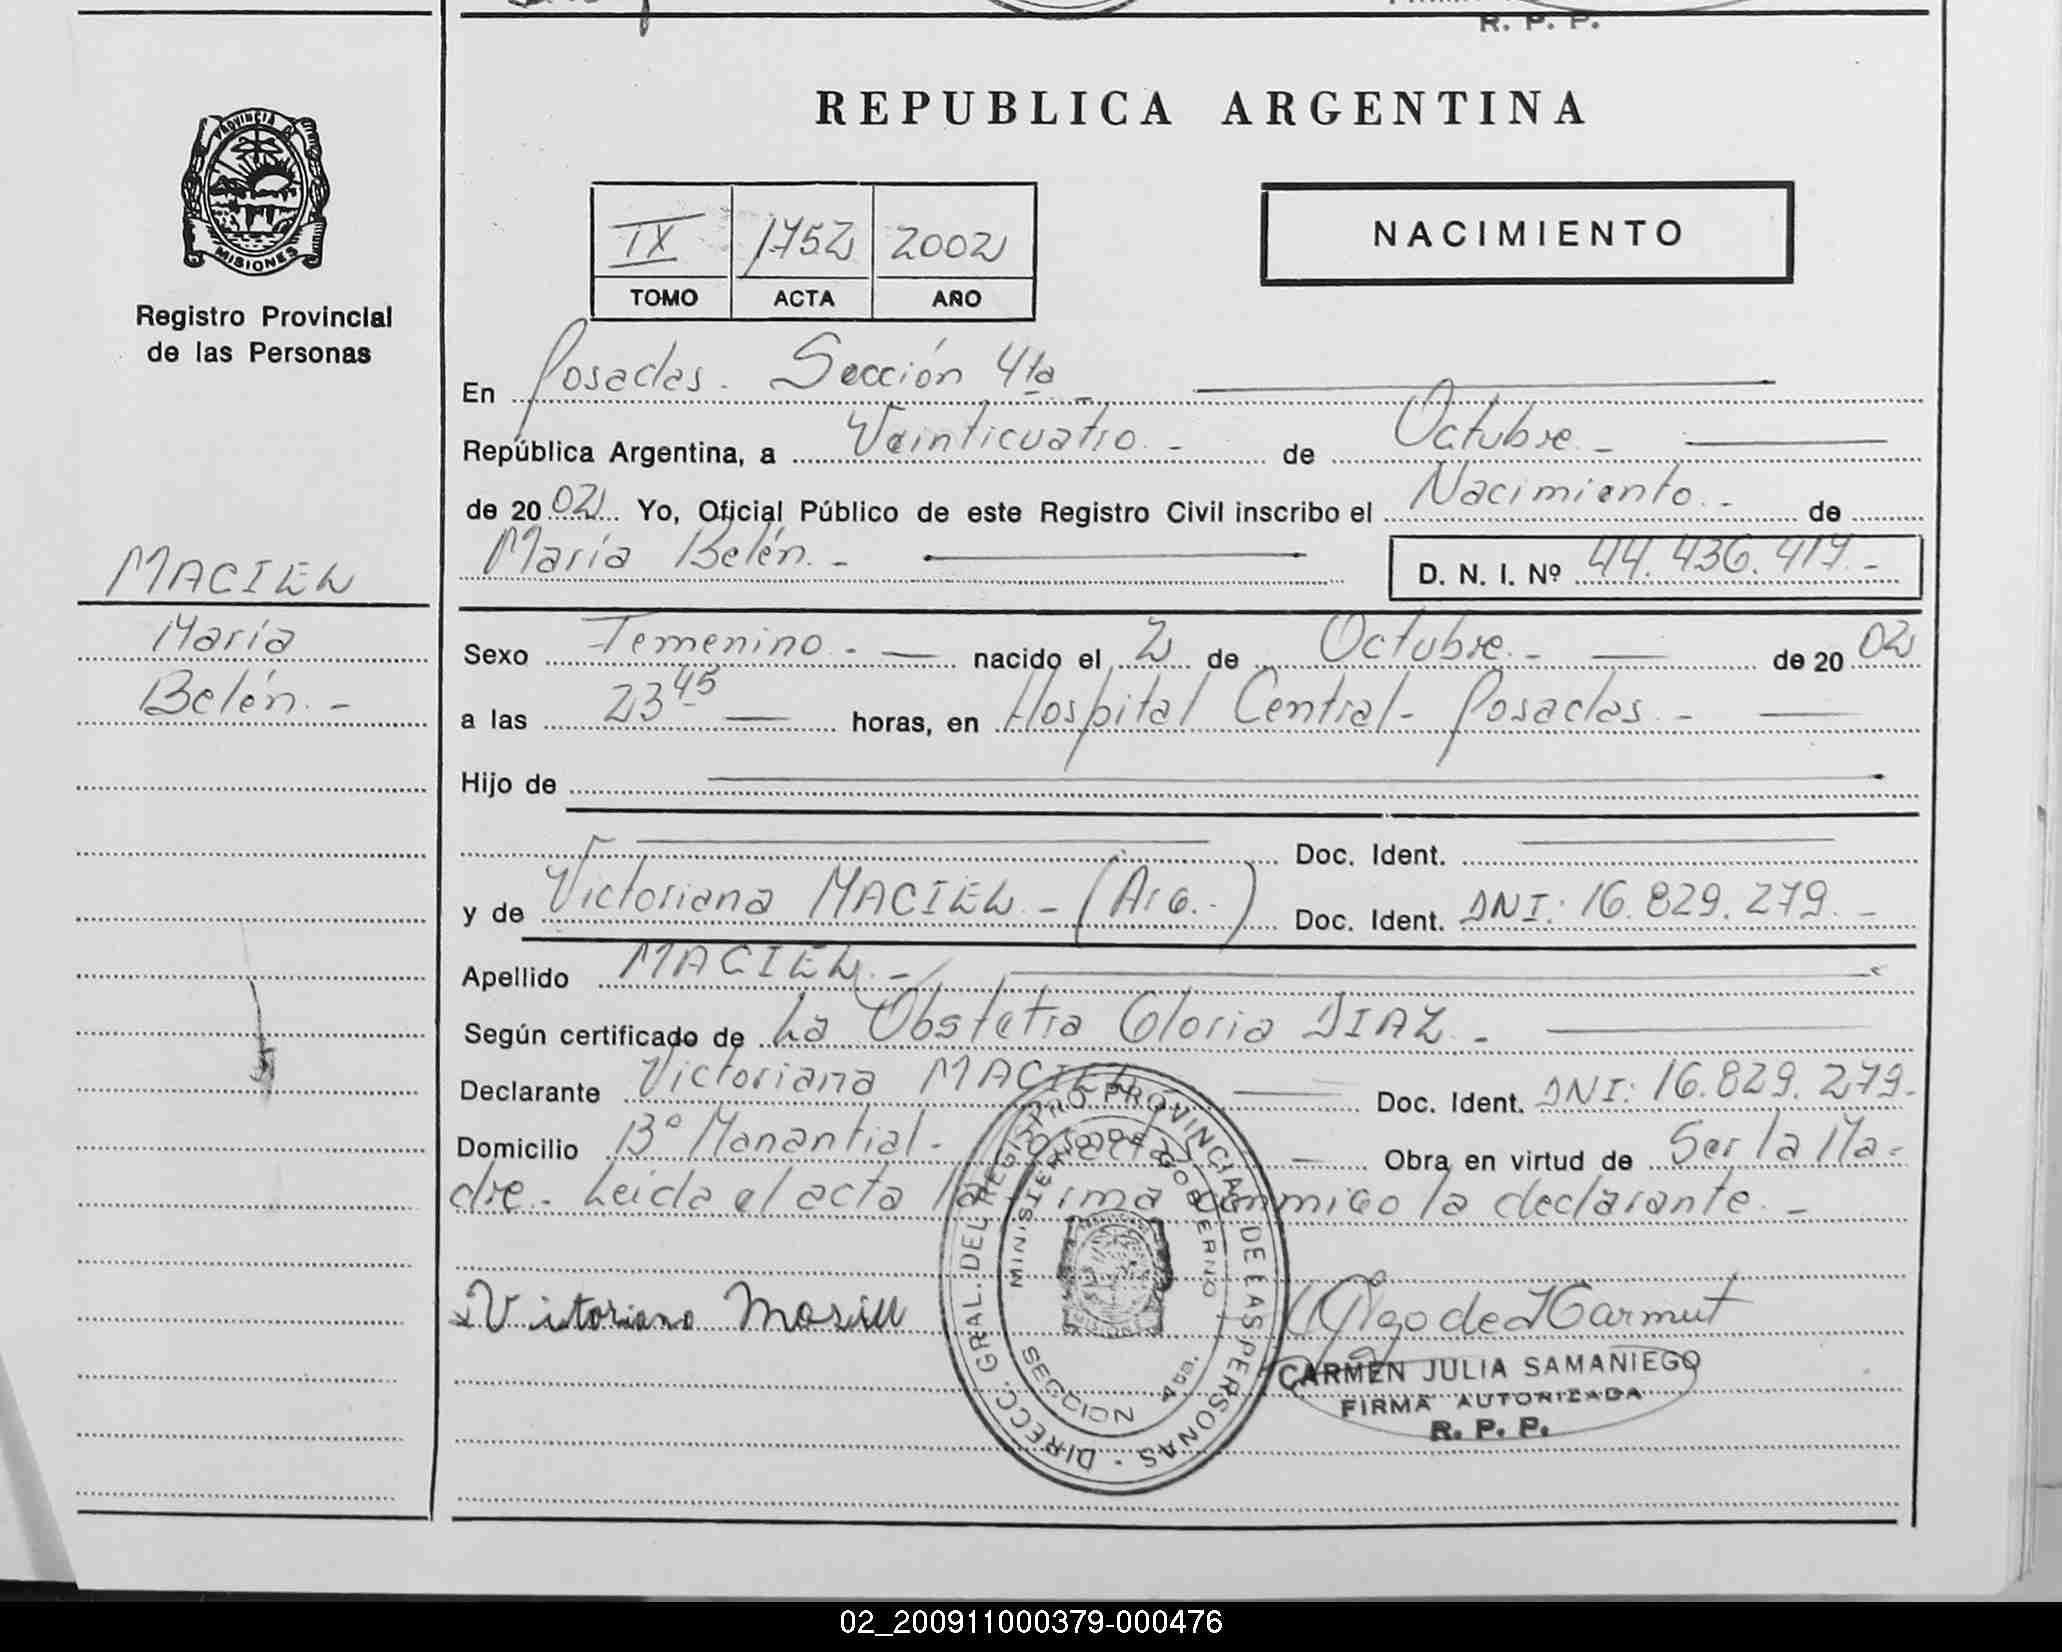 R. P. P.
PROVINCIA D
MISIONES
Registro Provincial
de las Personas
MACIEL
María
Belén. -
REPUBLICA ARGENTINA
IX 1752 2002
TOMO ACTA AÑO
NACIMIENTO
En Posadas. Sección 4ta -
República Argentina, a Veinticuatro. - de Octubre. -
de 20 02 Yo, Oficial Público de este Registro Civil inscribo el Nacimiento. - de
María Belén. - D. N. I. Nº 44.436.417. -
Sexo Femenino. - nacido el 2 de Octubre. - de 20 02
a las 23 45 horas, en Hospital Central - Posadas. -
Hijo de
Doc. Ident.
y de Victoriana MACIEL - (Arg.) Doc. Ident. DNI: 16.829.279. -
Apellido MACIEL. -
Según certificado de La Obstetra Gloria DIAZ. -
Declarante Victoriana MACIEL Doc. Ident. DNI: 16.829.279.
Domicilio Bº Manantial - Posadas - Obra en virtud de Ser la Ma-
dre. Leída el acta la firma conmigo la declarante. -
DIRECC. GRAL. DEL REGISTRO PROVINCIAL DE LAS PERSONAS
MINISTERIO DE GOBIERNO
SECCION 4ta.
CARMEN JULIA SAMANIEGO
FIRMA AUTORIZADA
R. P. P.
02_200911000379-000476